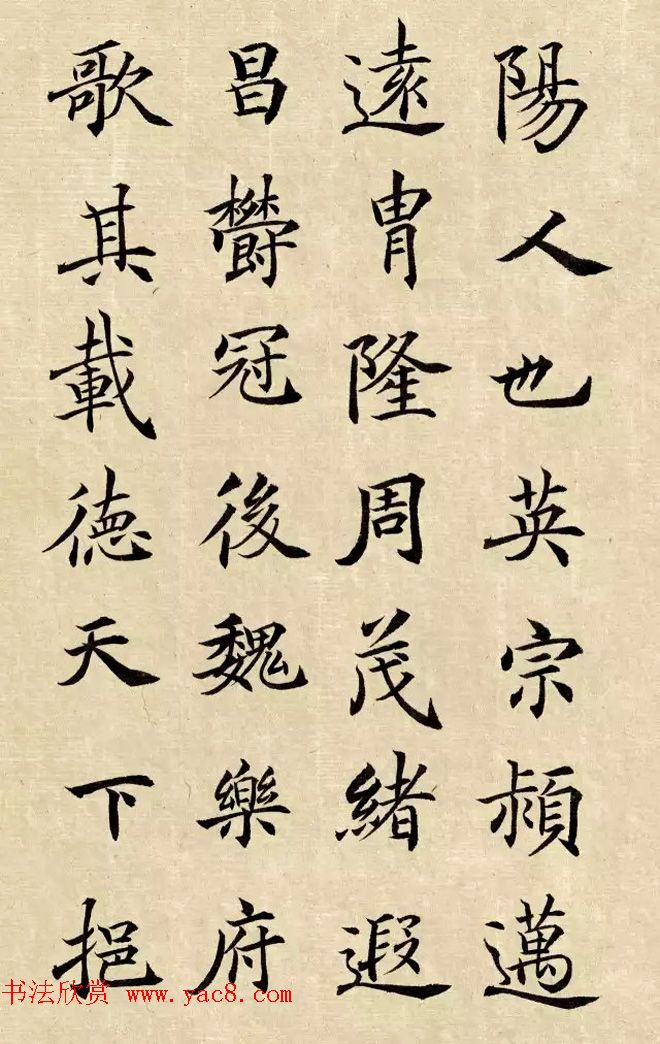 陽人也英宗頫邁
遠胄隆周茂緒遐
昌欝冠後魏樂府
歌其載德天下挹
书法欣赏 www.yac8.com